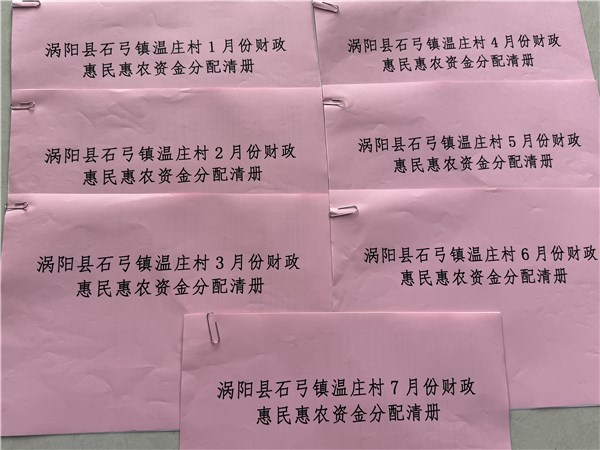 涡阳县石弓镇温庄村1月份财政
惠民惠农资金分配清册
涡阳县石弓镇温庄村2月份财政
惠民惠农资金分配清册
涡阳县石弓镇温庄村3月份财政
惠民惠农资金分配清册
涡阳县石弓镇温庄村4月份财政
惠民惠农资金分配清册
涡阳县石弓镇温庄村5月份财政
惠民惠农资金分配清册
涡阳县石弓镇温庄村6月份财政
惠民惠农资金分配清册
涡阳县石弓镇温庄村7月份财政
惠民惠农资金分配清册